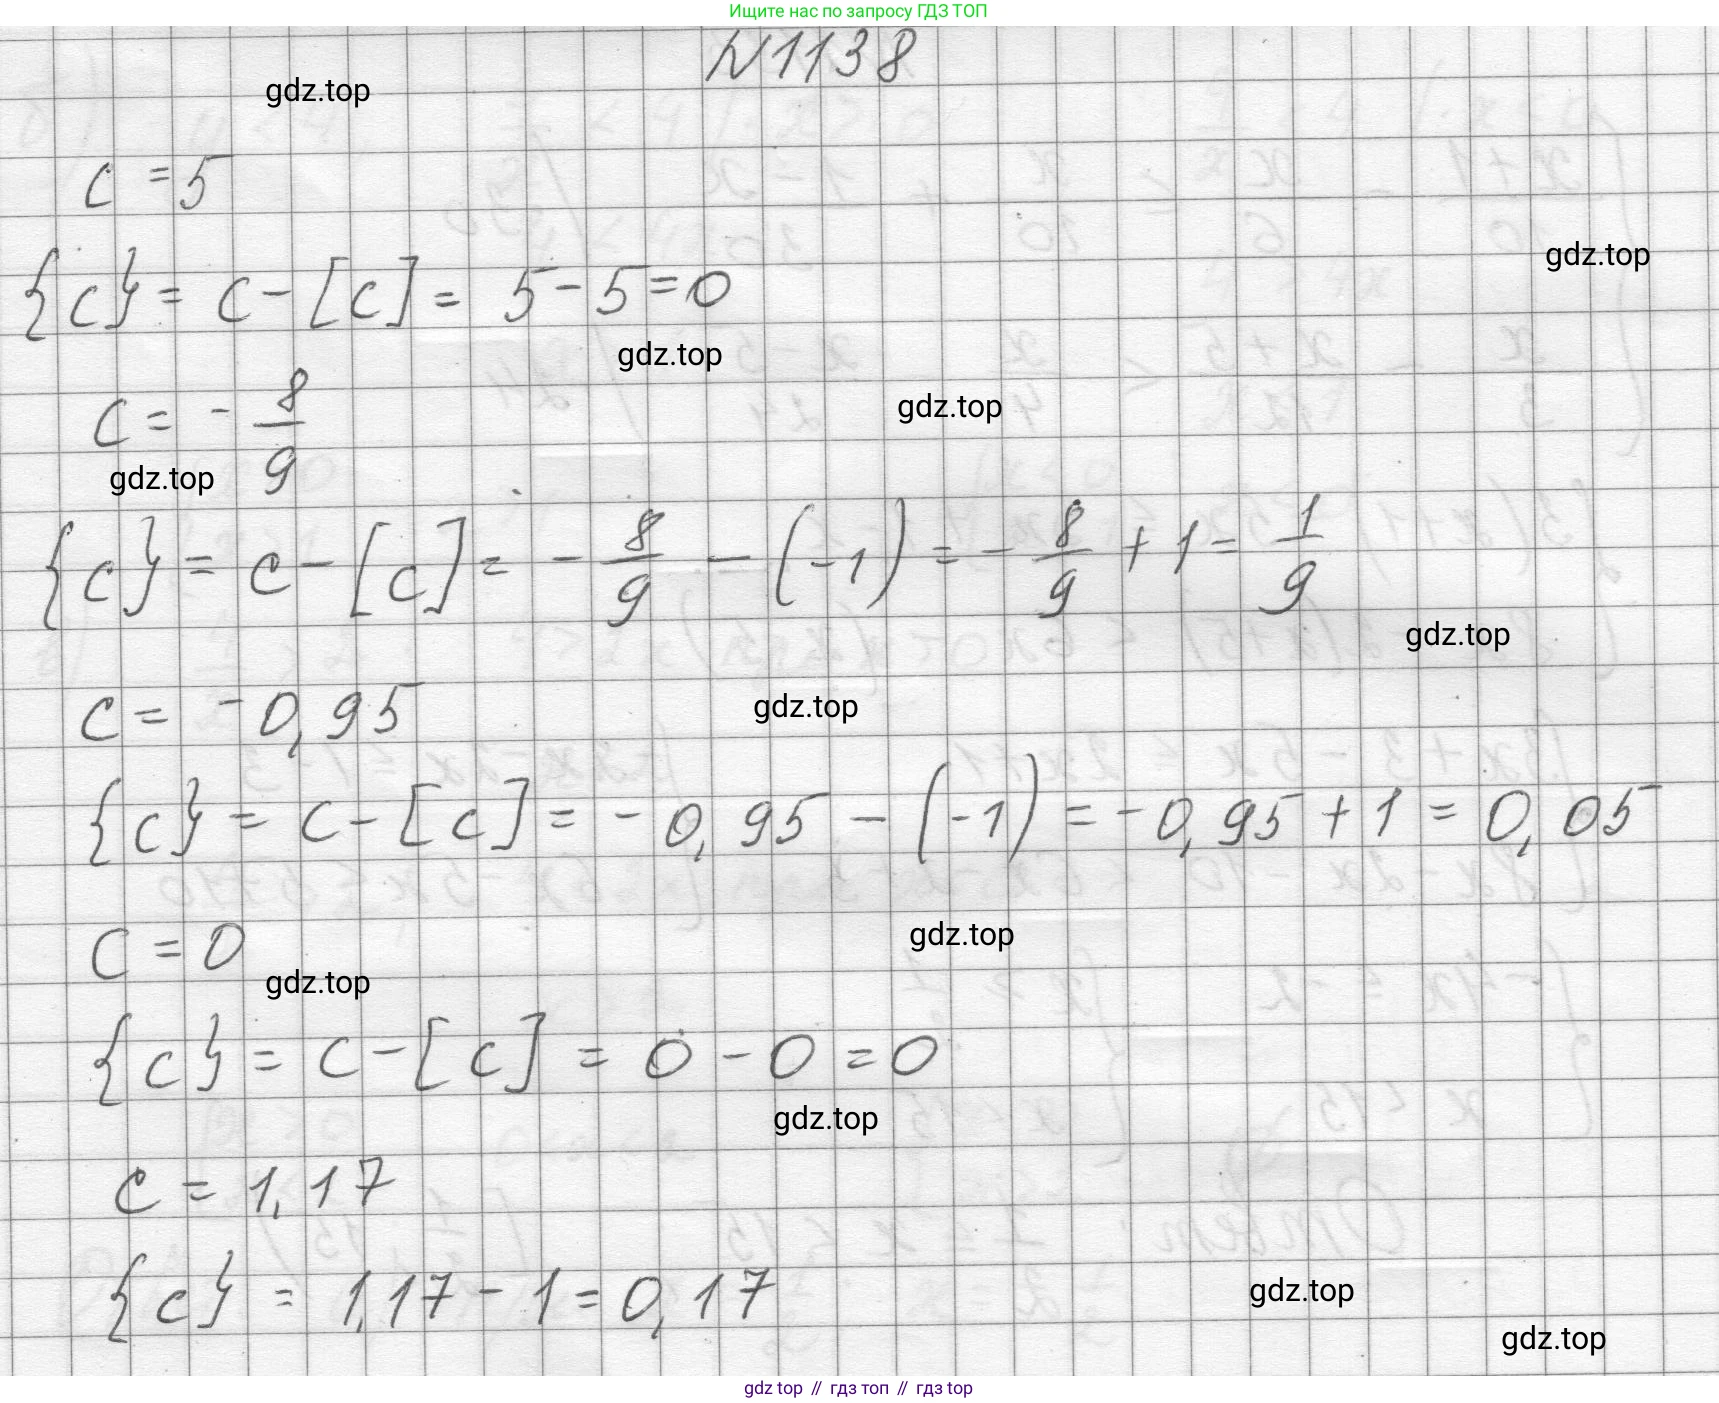 Ищите нас по запросу ГДЗ ТОП
N 1138
gdz.top
c = 5
gdz.top
{c} = c - [c] = 5 - 5 = 0
gdz.top
gdz.top
c = - 8/9
gdz.top
{c} = c - [c] = - 8/9 - (-1) = - 8/9 + 1 = 1/9
gdz.top
c = -0,95
gdz.top
{c} = c - [c] = -0,95 - (-1) = -0,95 + 1 = 0,05
gdz.top
c = 0
gdz.top
{c} = c - [c] = 0 - 0 = 0
gdz.top
c = 1,17
{c} = 1,17 - 1 = 0,17
gdz.top
gdz.top
gdz top // гдз топ // gdz top